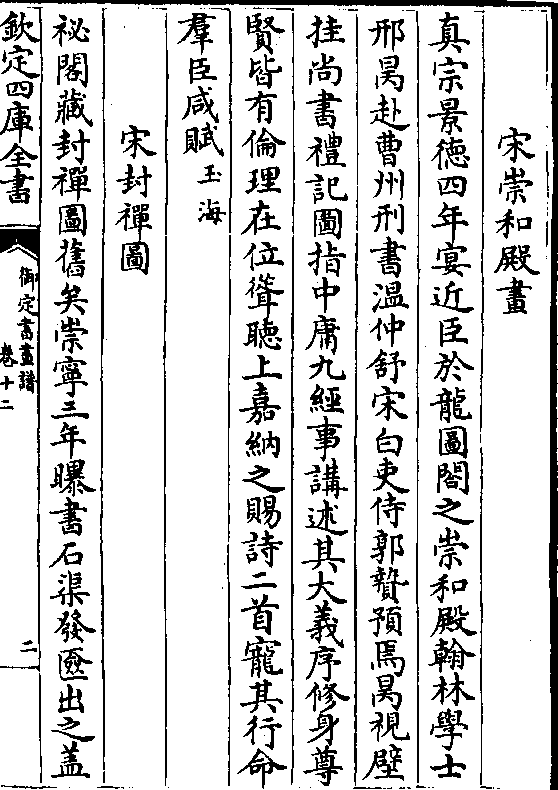 宋崇和殿畫
真宗景德四年宴近臣於龍圖閣之崇和殿翰林學士
邢昺赴曹州刑書温仲舒宋白吏侍郭贄預焉昺視壁
挂尚書禮記圖指中庸九經事講述其大義序修身尊
賢皆有倫理在位聳聽上嘉納之賜詩二首寵其行命
羣臣咸賦玉海
宋封禪圖
祕閣藏封禪圖舊矣崇寧三年曝書石渠發匳出之盖
欽定四庫全書
御定書畫譜
卷十二
二